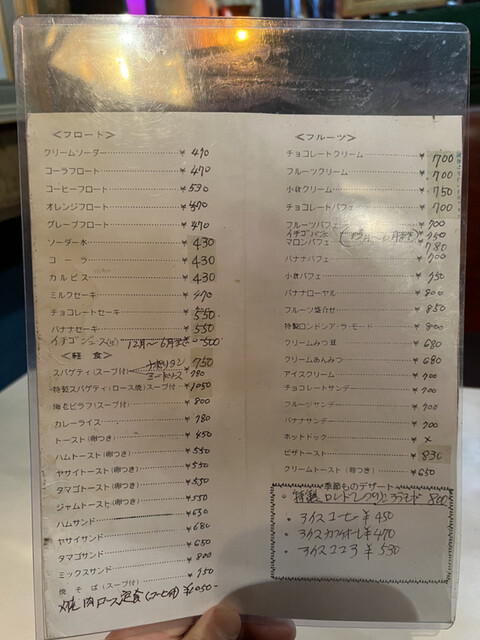 <フロート>
クリームソーダー ¥490
コーラフロート ¥470
コーヒーフロート ¥530
オレンジフロート ¥470
グレープフロート ¥470
ソーダー水 ¥430
コーラ ¥430
カルピス ¥430
ミルクセーキ ¥470
チョコレートセーキ ¥550
バナナセーキ ¥550
イチゴジュース 12月〜6月まで 500
<軽食>
スパゲティ(スープ付) ナポリタン ¥750
ミートソース 780
特製スパゲティ(ロース焼)スープ付 ¥1050
海老ピラフ(スープ付) ¥800
カレーライス ¥780
トースト(卵つき) ¥450
ハムトースト(卵つき) ¥550
ヤサイトースト(卵つき) ¥550
タマゴトースト(卵つき) ¥550
ジャムトースト(卵つき) ¥550
ハムサンド ¥630
ヤサイサンド ¥680
タマゴサンド ¥650
ミックスサンド ¥800
焼そば(スープ付) ¥750
焼肉ロース定食(コーヒー付) ¥1050-
<フルーツ>
チョコレートクリーム ¥700
フルーツクリーム ¥700
小倉クリーム ¥750
チョコレートパフェ ¥700
フルーツパフェ ¥700
イチゴパフェ
マロンパフェ 780
バナナパフェ ¥700
小倉パフェ ¥750
バナナローヤル ¥800
フルーツ盛合せ ¥850
特製ロンドンア・ラ・モード ¥800
クリームみつ豆 ¥680
クリームあんみつ ¥680
アイスクリーム ¥700
チョコレートサンデー ¥700
フルーツサンデー ¥700
バナナサンデー ¥700
ホットドック ×
ピザトースト ¥830
クリームトースト(卵つき) ¥650
季節ものデザート
・特製 800
・アイスコーヒー ¥450
・アイスカフェオーレ ¥470
・アイスココア ¥530